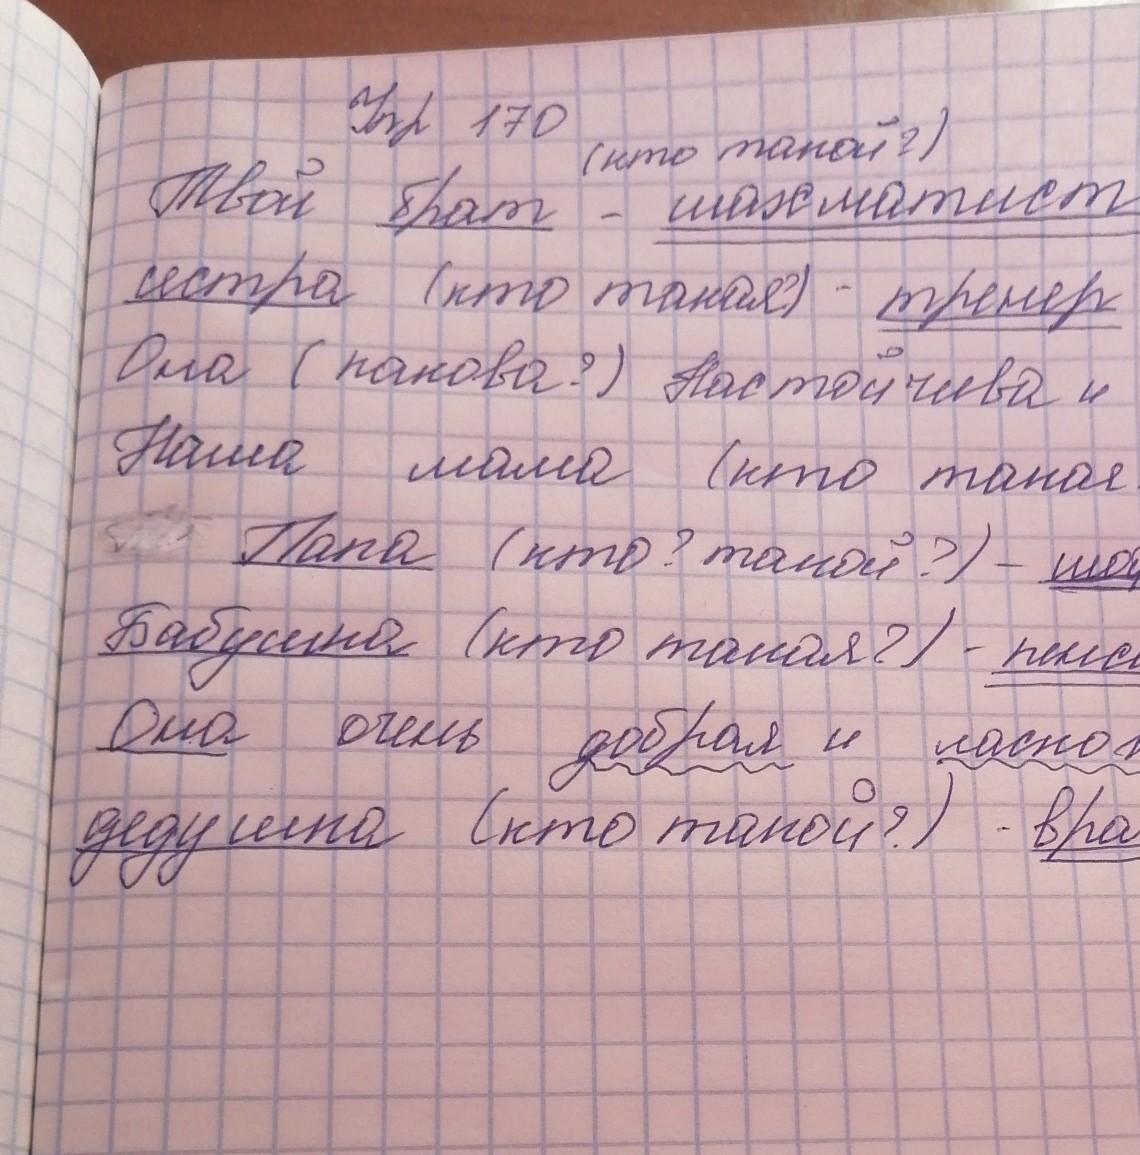 Упр 170
(кто такой?)
Твой брат - шахматист
сестра (кто такая?) - тренер
Она (какова?) Настойчива и
Наша мама (кто такая
Папа (кто? такой?) -
Бабушка (кто такая?) - пенси
Она очень добрая и ласков
дедушка (кто такой?) - вра